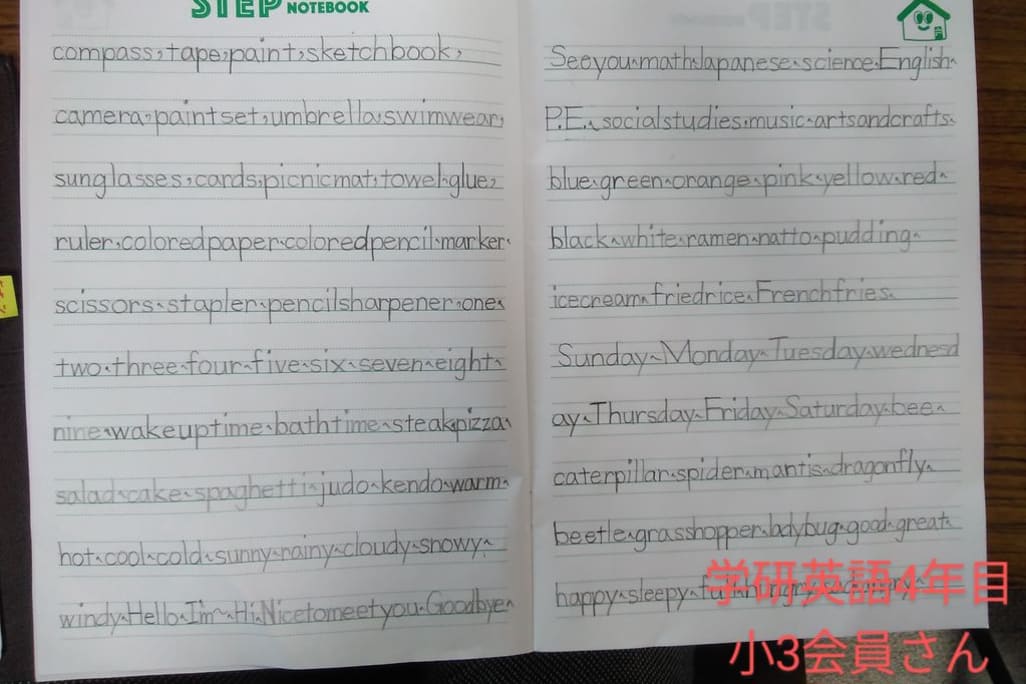 STEP NOTEBOOK
compass,tape,paint,sketchbook,
camera,paintset,umbrella,swimwear,
sunglasses,cards,picnicmat,towel,glue,
ruler,coloredpaper、coloredpencil、marker、
scissors、stapler、pencilsharpener、one、
two、three、four、five、six、seven、eight、
nine、wakeuptime、bathtime、steak、pizza、
salad、cake、spaghetti、judo、kendo、warm、
hot、cool、cold、sunny、rainy、cloudy、snowy、
windy、Hello、I'm〜、Hi、Nicetomeetyou、Goodbye、
Seeyou、math、Japanese、science、English、
P.E.、socialstudies、music、artsandcrafts、
blue、green、orange、pink、yellow、red、
black、white、ramen、natto、pudding、
icecream、friedrice、Frenchfries、
Sunday、Monday、Tuesday、wednesd
ay、Thursday、Friday、Saturday、bee、
caterpillar、spider、mantis、dragonfly、
beetle、grasshopper、ladybug、good、great、
happy、sleepy、
学研英語4年目
小3会員さん